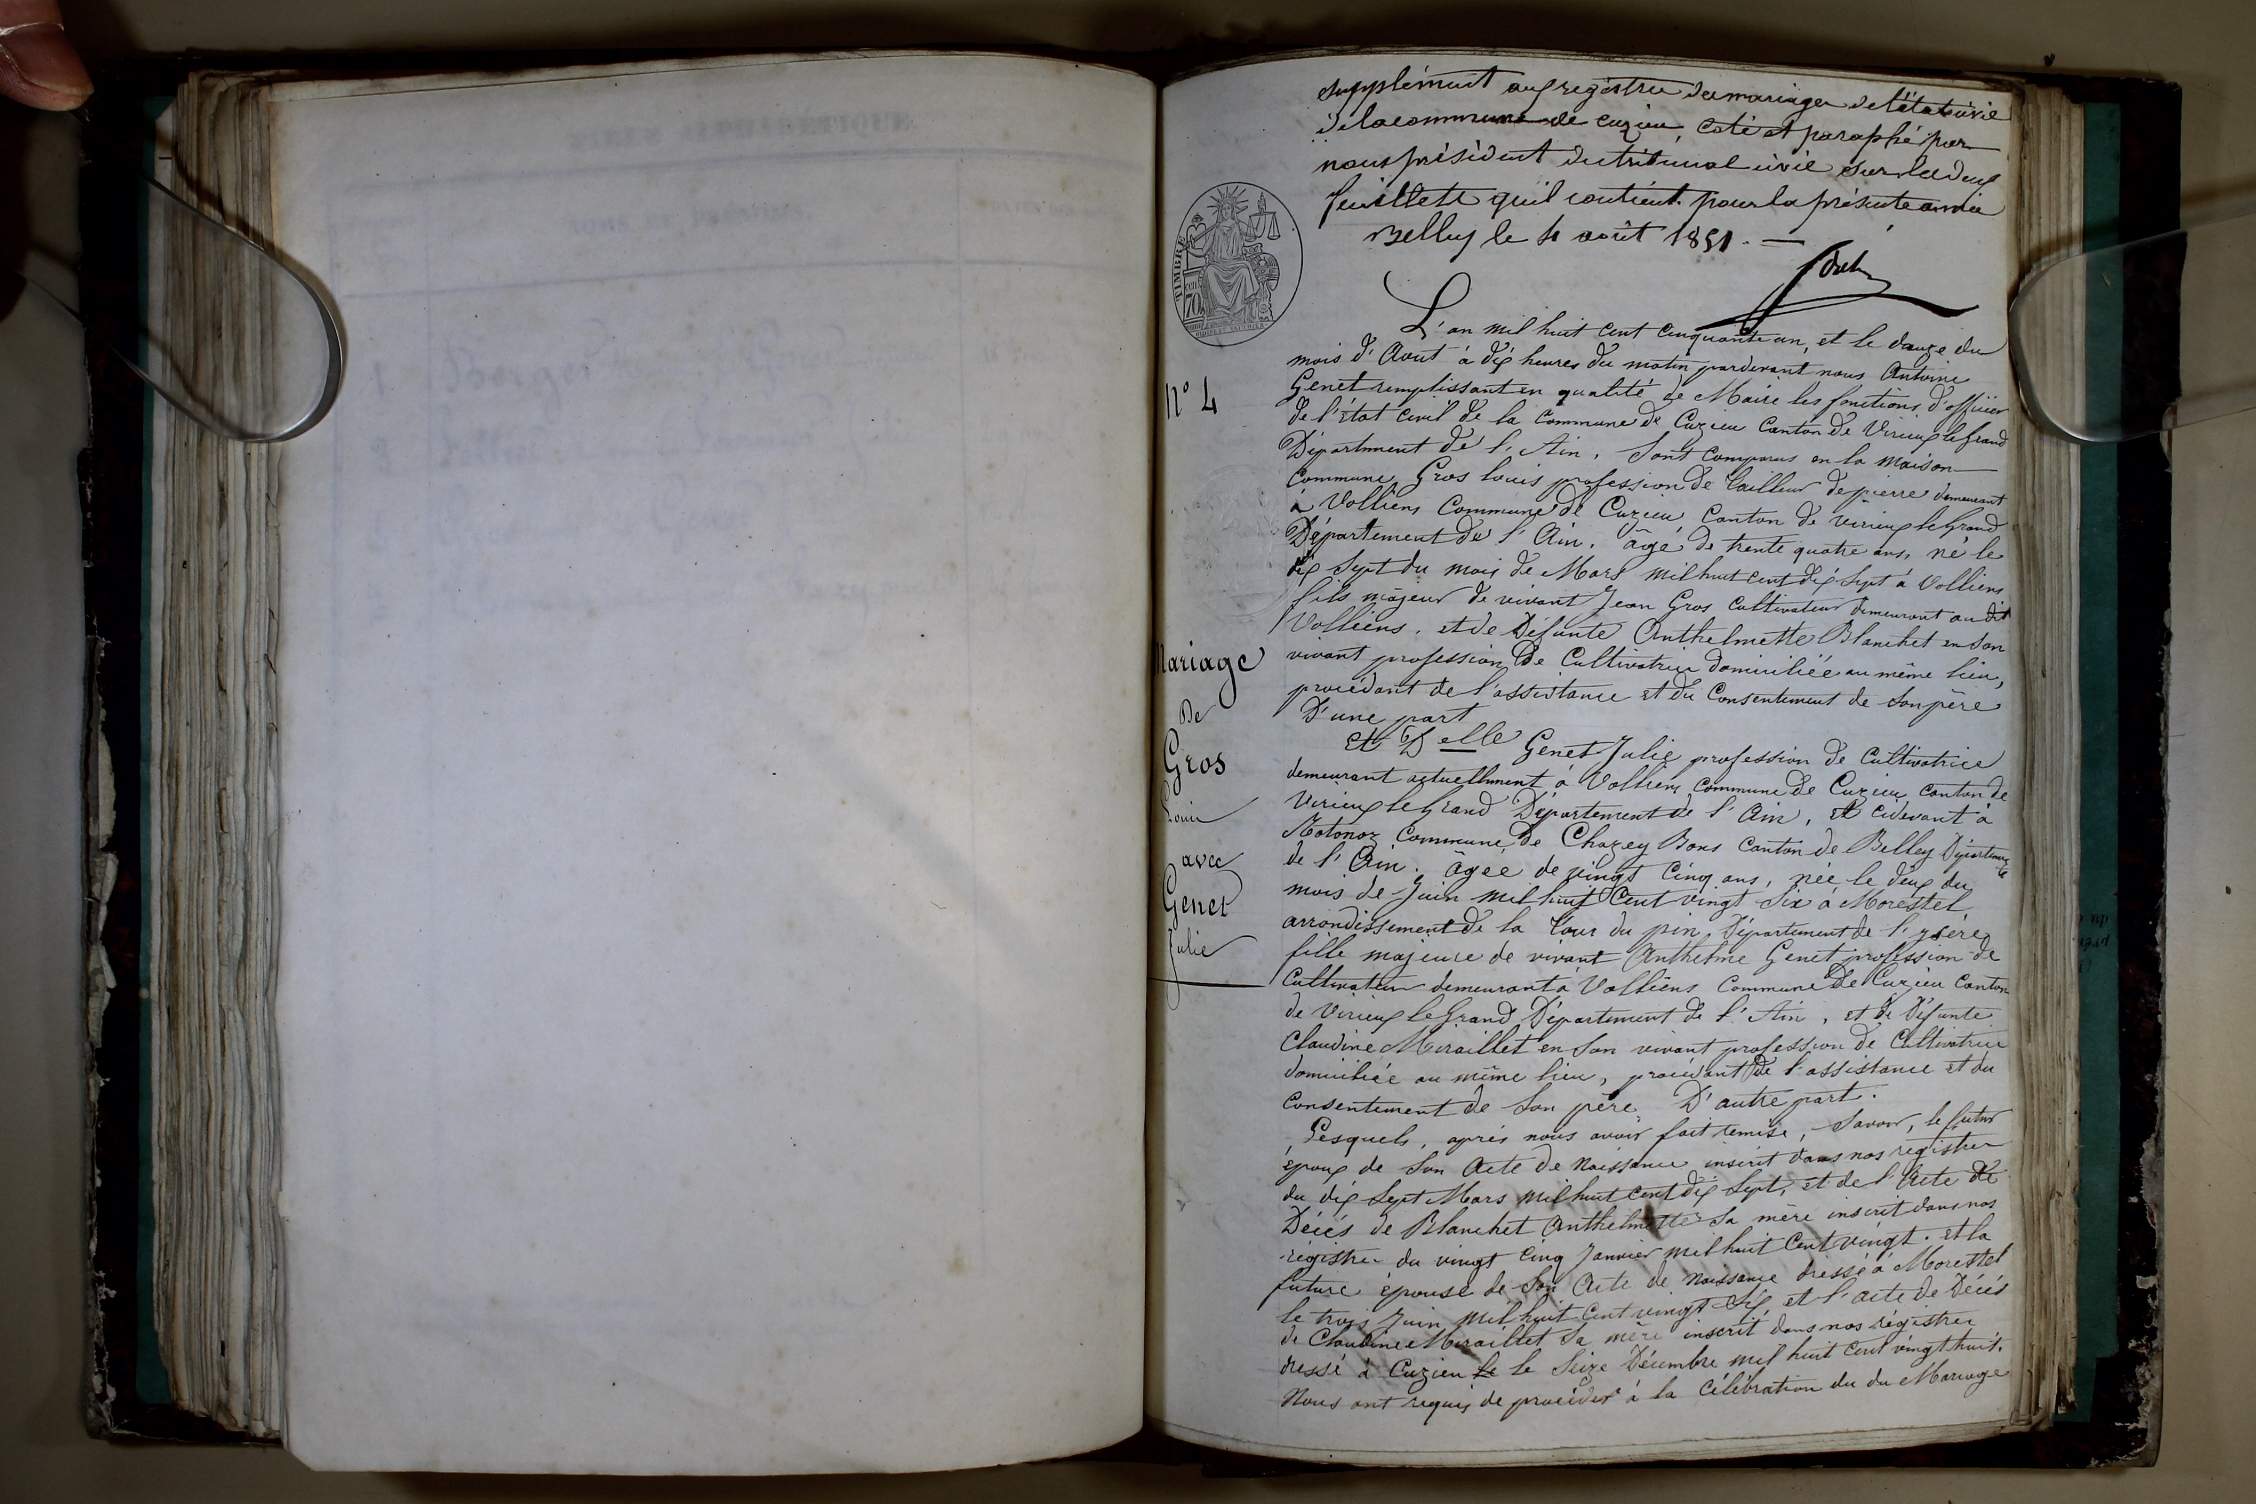 supplément aux registres des mariages de l'état civil
de la commune de cuzieu, coté et paraphé par
nous président du tribunal civil sur les deux
feuillets qu'il contient pour la présente année
Belley le 4 août 1851. —
TIMBRE
70c
L'an mil huit cent cinquante un, et le douze du
mois d'Aout à dix heures du matin pardevant nous Antoine
Genet remplissant en qualité de Maire les fonctions d'officier
de l'état civil de la Commune de Cuzieu Canton de Virieux le Grand
Département de l'Ain. Sont Comparus en la Maison
Commune, Gros Louis profession de tailleur de pierre demeurant
à Volliens Commune de Cuzieu Canton de virieux le Grand
Département de l'Ain. âgé de trente quatre ans, né le
dix Sept du mois de Mars mil huit cent dix Sept à Volliens
fils majeur de vivant Jean Gros Cultivateur demeurant au dit
Volliens. et de Défunte Anthelmette Blanchet en son
vivant profession de Cultivatrice domiciliée au même lieu,
procédant de l'assistance et du Consentement de son père
D'une part
Et Delle Genet Julie profession de Cultivatrice
demeurant actuellement à Volliens Commune de Cuzieu Canton de
Virieux le Grand Département de l'Ain, et cidevant à
Rotonoz Commune de Chazey Bons Canton de Belley Département
de l'Ain. âgée de vingt Cinq ans, née le deux du
mois de Juin mil huit Cent vingt Six à Morestel
arrondissement de la tour du pin, Département de l'ysère
fille majeure de vivant Anthelme Genet profession de
Cultivateur demeurant à Volliens Commune de Cuzieu Canton
de Virieux le Grand Département de l'Ain, et de Défunte
Claudine Miraillet en son vivant profession de Cultivatrice
domiciliée au même lieu, procédant de l'assistance et du
Consentement de Son père D'autre part.
Lesquels, après nous avoir fait remise, Savoir, le futur
époux de Son Acte de Naissance inscrit dans nos registres
du dix Sept Mars mil huit cent dix Sept, et de l'Acte de
Décès de Blanchet Anthelmette Sa mère inscrit dans nos
régistres du vingt Cinq Janvier mil huit Cent vingt. et la
future épouse de Son Acte de Naissance dressé à Morestel
le trois Juin mil huit Cent vingt-Six, et l'acte de Décès
de Claudine Miraillet Sa mère inscrit dans nos régistres
dressé à Cuzieu le le Seize Décembre mil huit Cent vingt huit.
Nous ont requis de procéder à la Célébration du du Mariage
N° 4
Mariage
De
Gros
Louis
avec
Genet
Julie